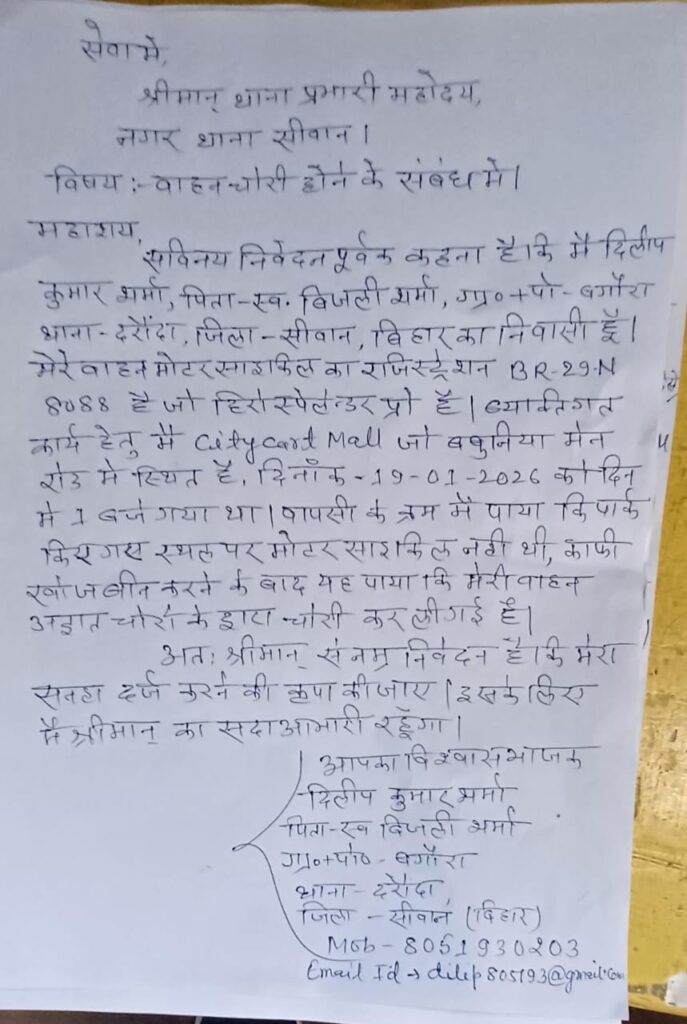 सेवा में,
श्रीमान् थाना प्रभारी महोदय,
नगर थाना सीवान।
विषय :- वाहन चोरी होने के संबंध मे।
महाशय,
सविनय निवेदन पूर्वक कहना है कि मै दिलीप
कुमार शर्मा, पिता-स्व. बिजली शर्मा, ग्रा०+पो-बगौरा
थाना-दरौंदा, जिला-सीवान, बिहार का निवासी हूँ।
मेरे वाहन मोटर साइकिल का रजिस्ट्रेशन BR-29-N
8088 है जो हिरो स्पेलेन्डर प्रो है। व्यक्तिगत
कार्य हेतु मै City Cart Mall जो बबुनिया मेन
रोड मे स्थित है, दिनाँक-19-01-2026 को दिन
मे 1 बजे गया था। वापसी के क्रम मे पाया कि पार्क
किए गए स्थल पर मोटर साइकिल नही थी, काफी
खोजबीन करने के बाद यह पाया कि मेरी वाहन
अज्ञात चोरो के द्वारा चोरी कर ली गई है।
अतः श्रीमान् से नम्र निवेदन है कि मेरा
सनहा दर्ज करने की कृपा की जाए। इसके लिए
मै श्रीमान् का सदा आभारी रहूँगा।
आपका विश्वासभाजक
दिलीप कुमार शर्मा
पिता-स्व बिजली शर्मा
ग्रा०+पो०-बगौरा
थाना-दरौंदा
जिला-सीवान (बिहार)
Mob-8051930203
Email Id → dilip805193@gmail.com